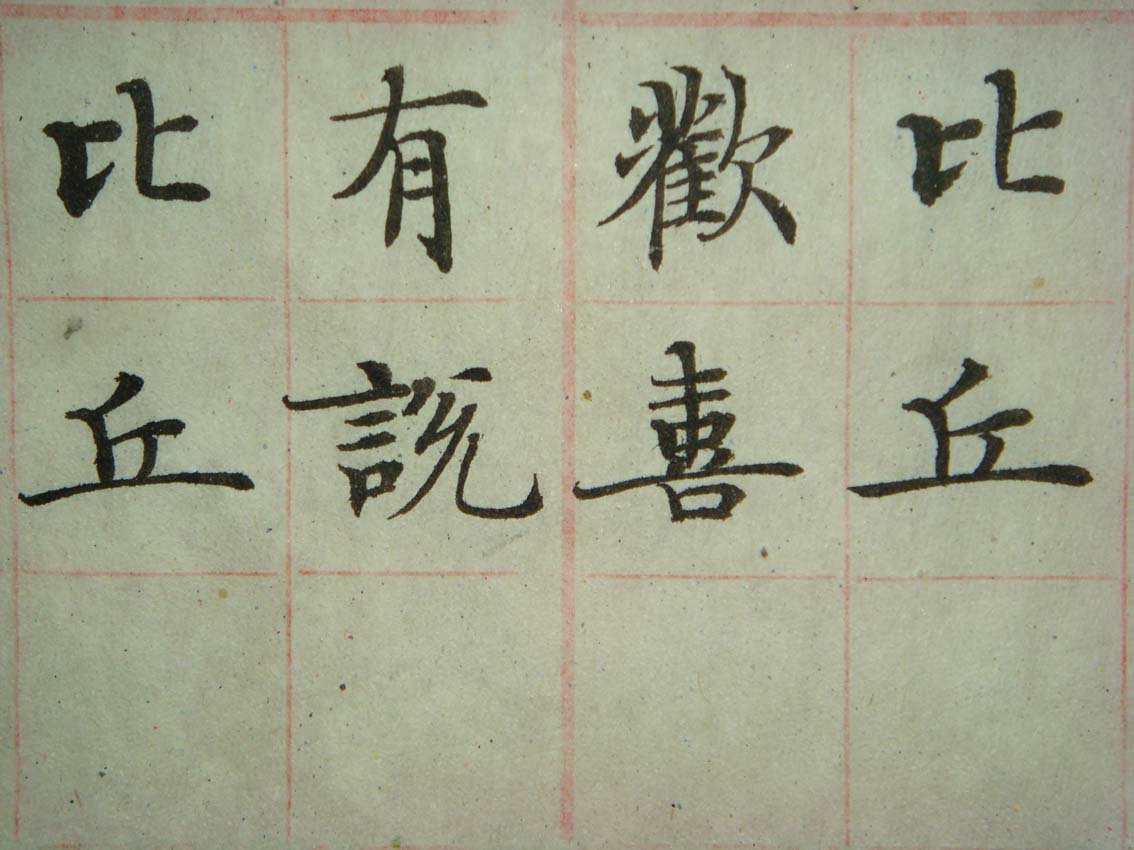 比丘
歡喜
有說
比丘